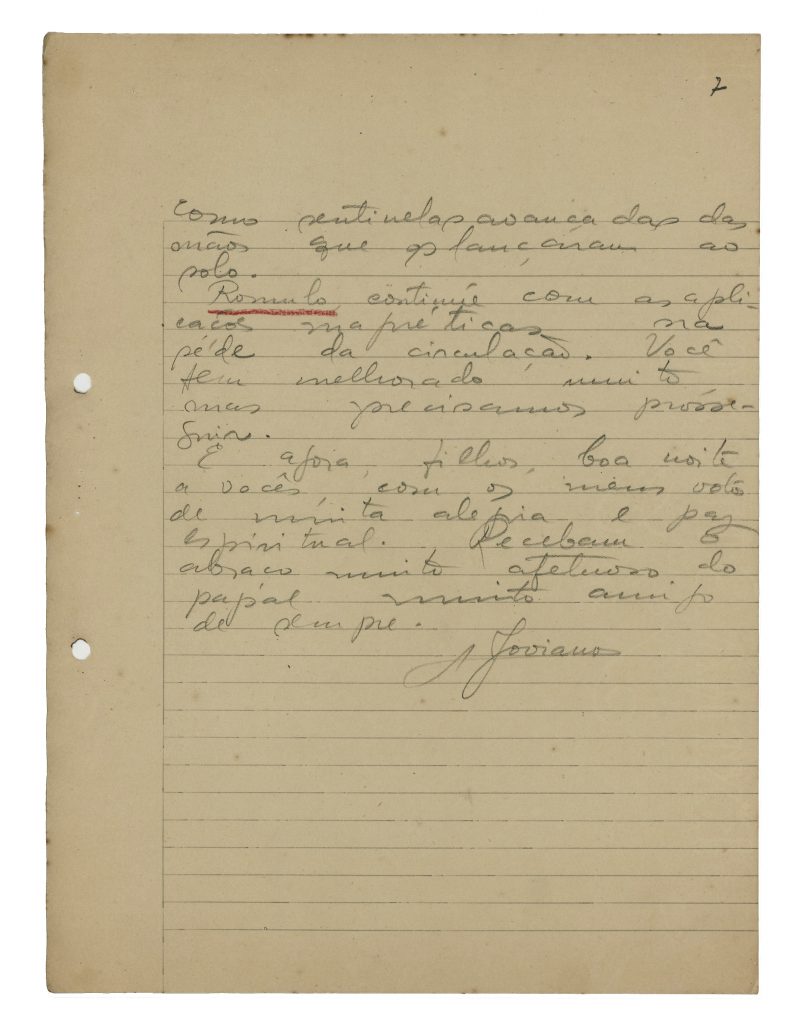 7
como sentinelas avançadas das
mãos que os lançáram ao
solo.
Romulo, continúe com as apli-
cacões magnéticas na
séde da circulação. Você
tem melhorado muito
mas precisamos prosse-
guir.
E agora, filhos, boa noite
a vocês, com os meus votos
de muita alegria e paz
espiritual. Recebam o
abraco muito afetuoso do
papai muito amigo
de sempre.
A Joviano